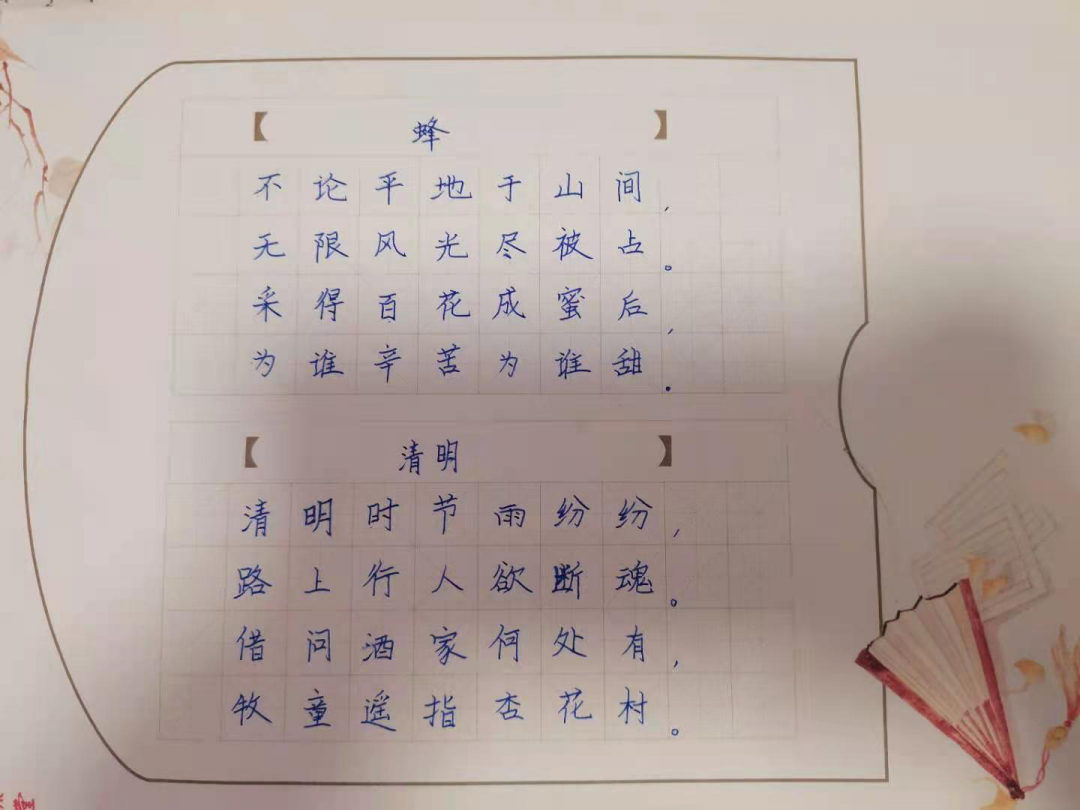 【 蜂 】
不论平地于山间，
无限风光尽被占。
采得百花成蜜后，
为谁辛苦为谁甜。
【 清明 】
清明时节雨纷纷，
路上行人欲断魂。
借问酒家何处有，
牧童遥指杏花村。